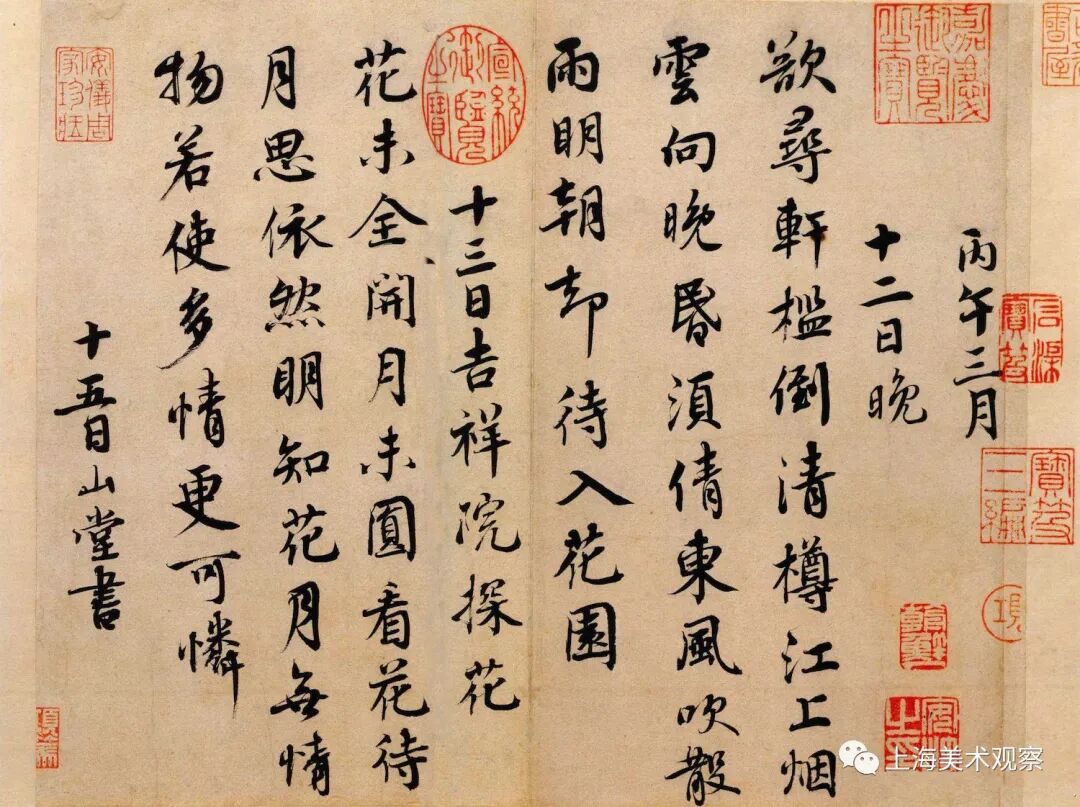 丙午三月
十二日晚
欲尋軒檻倒清樽江上烟
雲向晚昏須倩東風吹散
雨明朝却待入花園
十三日吉祥院探花
花未全開月未圓看花待
月思依然明知花月無情
物若使多情更可憐
十五日山堂書
嘉慶御覽之寶
宣統御覽之寶
安儀周家珍藏
上海美术观察